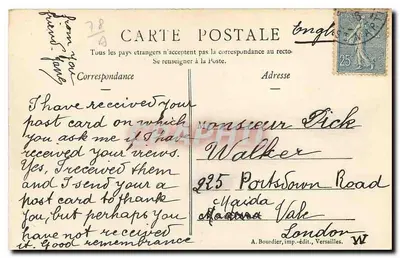 from you
friend. Yang
78
CARTE POSTALE
Tous les pays étrangers n'acceptent pas la correspondance au recto
Se renseigner à la Poste.
Correspondance
Adresse
25
I have received your
post card on which
you ask me if I have
received your views.
Yes, I received them
and I send your a
post card to thank
you, but perhaps you
have not received
it. Good remembrance
Monsieur Dick
Walker
225 Portsdown Road
Maida
Vale
London
W
A. Bourdier, imp.-édit., Versailles.